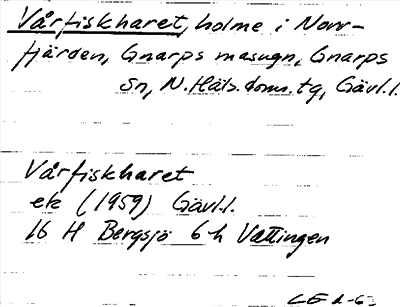 Vårfiskharet, holme i Norr-
fjärden, Gnarps masugn, Gnarps
sn, N. Häls. doms. tg, Gävl.l.
Vårfiskharet
ek (1959) Gävl.l.
16 H Bergsjö 6h Vattingen